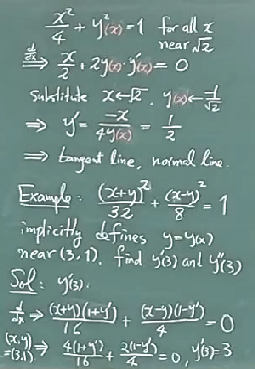 x²/4 + y²(x) = 1 for all x
near √2
d/dx ⟹ x/2 + 2y(x)·y'(x) = 0
Substitute x ← √2, y(x) ← 1/√2
⟹ y' = -x/4y(x) = 1/2
⟹ tangent line, normal line.
Example: (x+y)²/32 + (x-y)²/8 = 1
implicitly defines y=y(x)
near (3,1). find y'(3) and y''(3)
Sol: y'(3).
d/dx ⟹ (x+y)(1+y')/16 + (x-y)(1-y')/4 = 0
(x,y)=(3,1) ⟹ 4(1+y')/16 + 2(1-y')/4 = 0, y'(3)=3